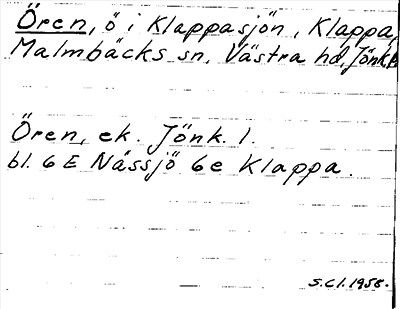 Ören, ö i Klappasjön, Klappa,
Malmbäcks sn, Västra hd, Jönk.
Ören, ek. Jönk. 1.
bl. 6 E Nässjö 6e Klappa.
S.Cl. 1958.